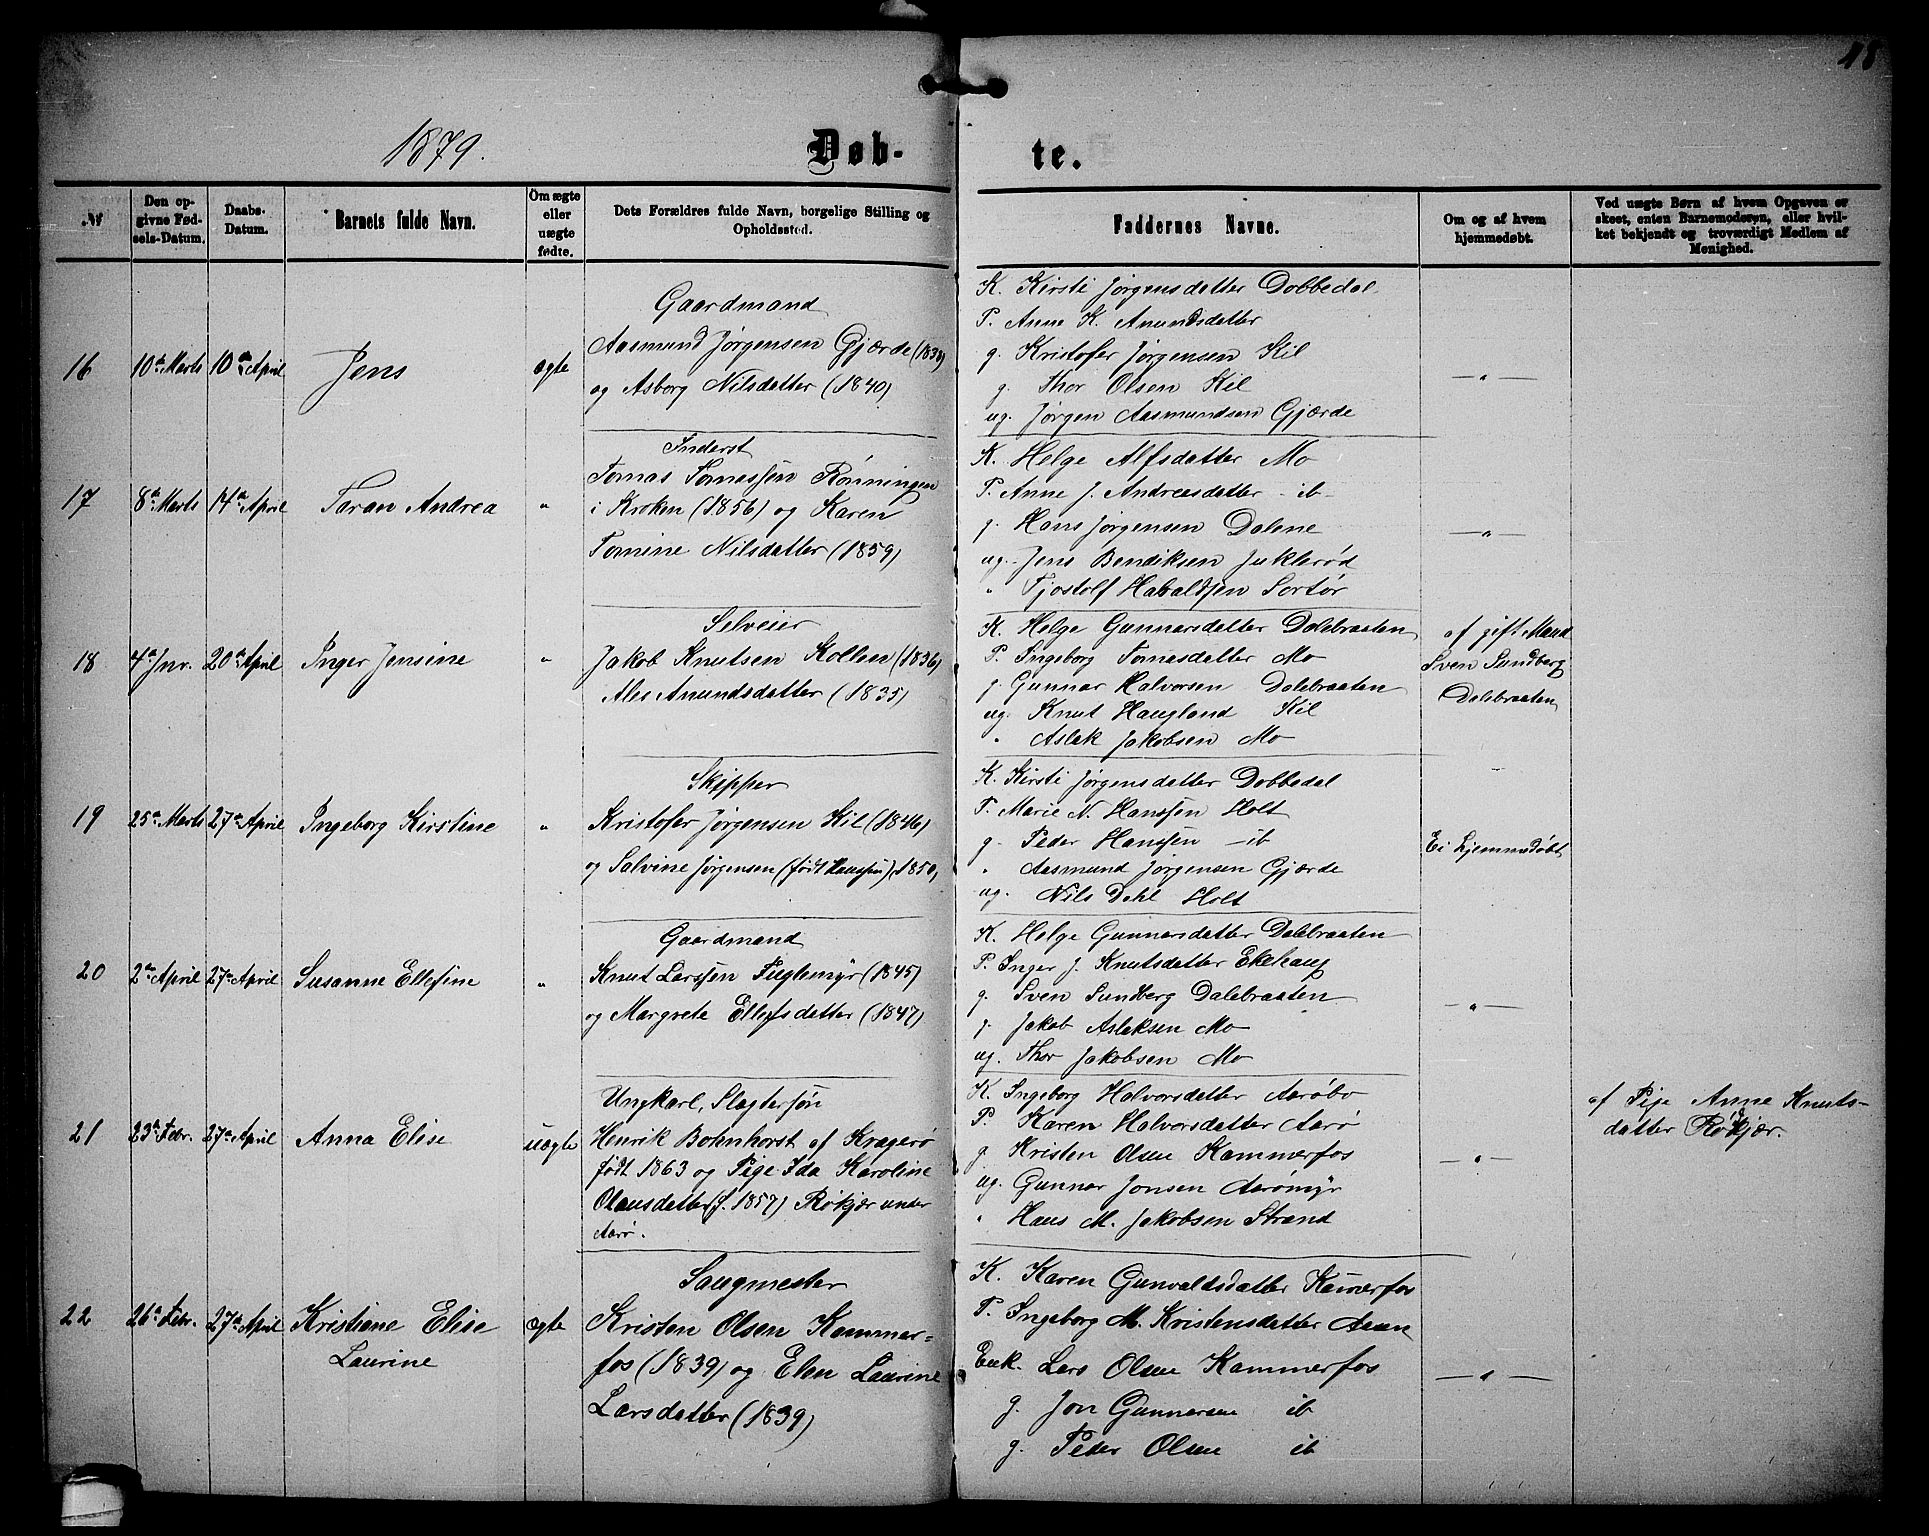 18
1879.
Døb-
te.
№
Den op-
givne Fød-
sels-Datum.
Daabs-
Datum.
Barnets fulde Navn.
Om ægte
eller
uægte
fødte.
Dets Forældres fulde Navn, borgelige Stilling og
Opholdssted.
Faddernes Navne.
Om og af hvem
hjemmedøbt.
Ved uægte Børn af hvem Opgaven er
skeet, enten Barnemoderen, eller hvil-
ket bekjendt og troværdigt Medlem af
Menighed.
16
10de Marts
10de April
Jens
ægte
Gaardmand
Aasmund Jørgensen Gjærde (1838)
og Asborg Nilsdatter (1840)
K. Kirsti Jørgensdatter Dobbedal
P. Anne K. Anundsdatter
g. Kristofer Jørgensen Kil
g. Thor Olsen Kil
ug. Jørgen Aasmundsen Gjærde
—„—
17
8de Marts
14de April
Taran Andrea
„
Inderst
Tomas Tomassen Rønningen
i Kroken (1856) og Karen
Tomine Nilsdatter (1859)
K. Helge Alfsdatter Mo
P. Anne J. Andreasdatter -ib-
g. Hans Jørgensen Dalene
ug. Jens Bendiksen Juklerød
„ Tjostolf Habaldsen Sortør
—„—
18
4de Jnr.
20de April
Inger Jensine
„
Selveier
Jakob Knutsen Kollen (1836)
Ales Anundsdatter (1835)
K. Helge Gunnarsdatter Dalebraaten
P. Ingeborg Tomasdatter Mo
g. Gunnar Halvorsen Dalebraaten
ug. Knut Haugland Kil
„ Aslak Jakobsen Mo
af gift Mand
Sven Sundberg
Dalebraaten
19
25de Marts
27de April
Ingeborg Kirstine
„
Skipper
Kristofer Jørgensen Kil (1846)
og Salvine Jørgensen (født Hanssen), 1850,
K. Kirsti Jørgensdatter Dobbedal
P. Marie N. Hanssen Holt
g. Peder Hanssen -ib
„ Aasmund Jørgensen Gjærde
ug. Nils Dahl Holt
Ei hjemmedøbt
20
2de April
27de April
Susanne Ellefine
„
Gaardmand
Knut Larssen Fuglemyr (1845)
og Margrete Ellefsdatter (1847)
K. Helge Gunnarsdatter Dalebraaten
P. Inger J. Knutsdatter Ekehaug
g. Sven Sundberg Dalebraaten
g. Jakob Aslaksen Mo
ug. Thor Jakobsen Mo
—„—
21
23de Febr.
27de April
Anna Elise
uægte
Ungkarl, Slagtersøn
Henrik Bohnhorst af Kragerø
født 1863 og Pige Ida Karoline
Olausdatter (f. 1857) Røkjær under
Aarø.
K. Ingeborg Halvorsdatter Aarøbo
P. Karen Halvorsdatter Aarø
g. Kristen Olsen Kammerfos
ug. Gunnar Jonsen Aarømyr
„ Hans M. Jakobsen Strand
—„—
af Pige Anne Knuts-
datter Røkjær.
22
26de Febr.
27de April
Kristiane Elise
Laurine
ægte
Saugmester
Kristen Olsen Kammer-
fos (1839) og Elen Laurine
Larsdatter (1839)
K. Karen Gunvaldsdatter Kamerfos
P. Ingeborg M. Kristensdatter Aasen
Enk. Lars Olsen Kammerfos
g. Jon Gunnarsen ib
g. Peder Olsen ib
—„—